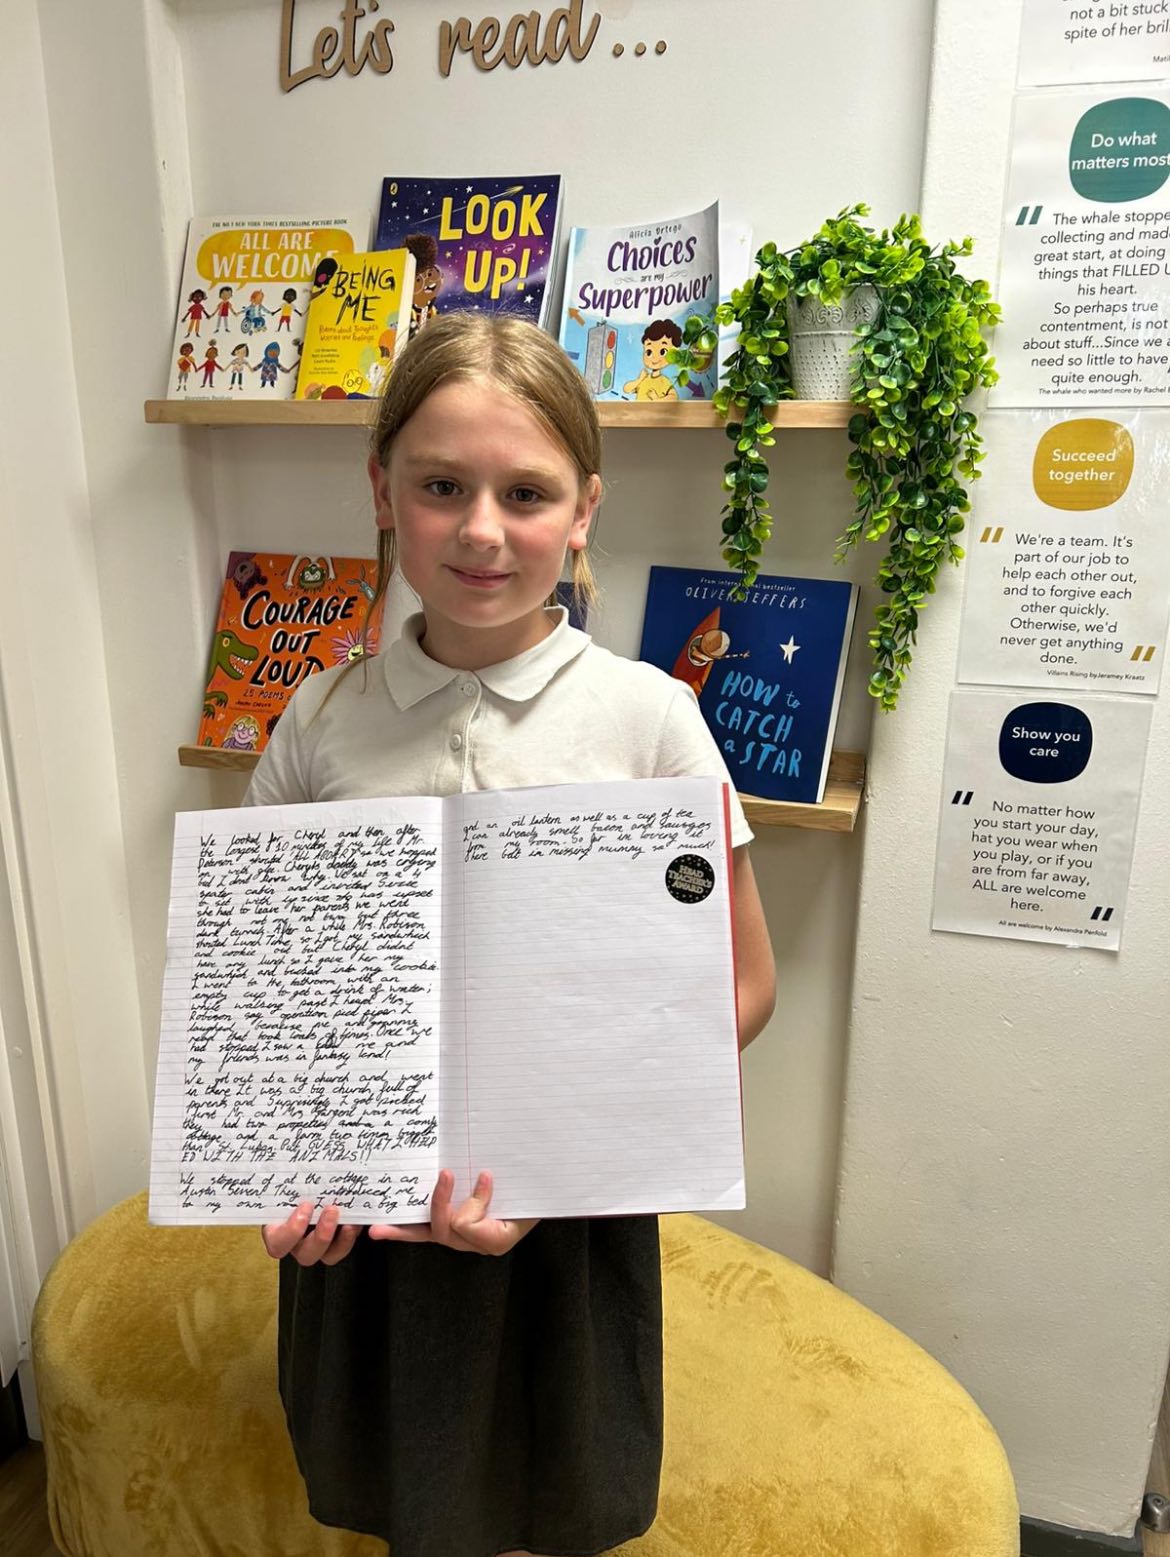 Let's read...
not a bit stuck
spite of her bril
THE NO.1 NEW YORK TIMES BESTSELLING PICTURE BOOK
ALL ARE
WELCOM
BEING
ME
Poems about Thoughts
Worries and Feelings
LOOK
UP!
Alicia Ortego
Choices
are my
Superpower
Do what
matters most
The whale stoppe
collecting and mad
great start, at doing
things that FILLED U
his heart.
So perhaps true
contentment, is not
about stuff...Since we a
need so little to have
quite enough.
The whale who wanted more by Rachel
Succeed
together
We're a team. It's
part of our job to
help each other out,
and to forgive each
other quickly.
Otherwise, we'd
never get anything
done.
Villains Rising by Jeramey Kraatz
Show you
care
No matter how
you start your day,
hat you wear when
you play, or if you
are from far away,
ALL are welcome
here.
All are welcome by Alexandra Penfold
COURAGE
OUT
LOUD
25 POEMS
From international bestseller
OLIVER JEFFERS
HOW to
CATCH
a STAR
We looked for Cheryl and then after
the longest 10 minutes of my life Mr.
Peterson shouted "ALL ABOARD" so we hopped
on with glee. Cheryls daddy was crying
but I dont know why. We sat on a 4
seater cabin and invited Susie
to sit with us since she was upset
she had to leave her parents we went
through not one not two but three
dark tunnels. After a while Mrs. Robison
shouted Lunch Time, so I got my sandwhich
and cookie out but Cheryl didnt
have any lunch so I gave her my
sandwhich and tucked into my cookie.
I went to the bathroom with an
empty cup to get a drink of water;
while walking past I heard Mrs.
Robison say operation pied piper I
laughed because me and
read that book loads of times. Once we
had stopped I saw a me and
my friends was in fantasy land!
We got out at a big church and went
in there It was a big church full of
parents and Suprisingly I got picked
first Mr. and Mrs Sargent was rich
they had two propeties and a comfy
cottage and a farm two times bigger
than St. Lukes. But GUESS WHAT I HELP
ED WITH THE ANIMALS!!
We stopped of at the cottage in an
Austin Seven! They introduced me
to my own room I had a big bed
and an oil lantern as well as a cup of tea
I can already smell bacon and sausages
from my room. So far im loving it
here but im missing mummy so much!
HEAD
TEACHER'S
AWARD